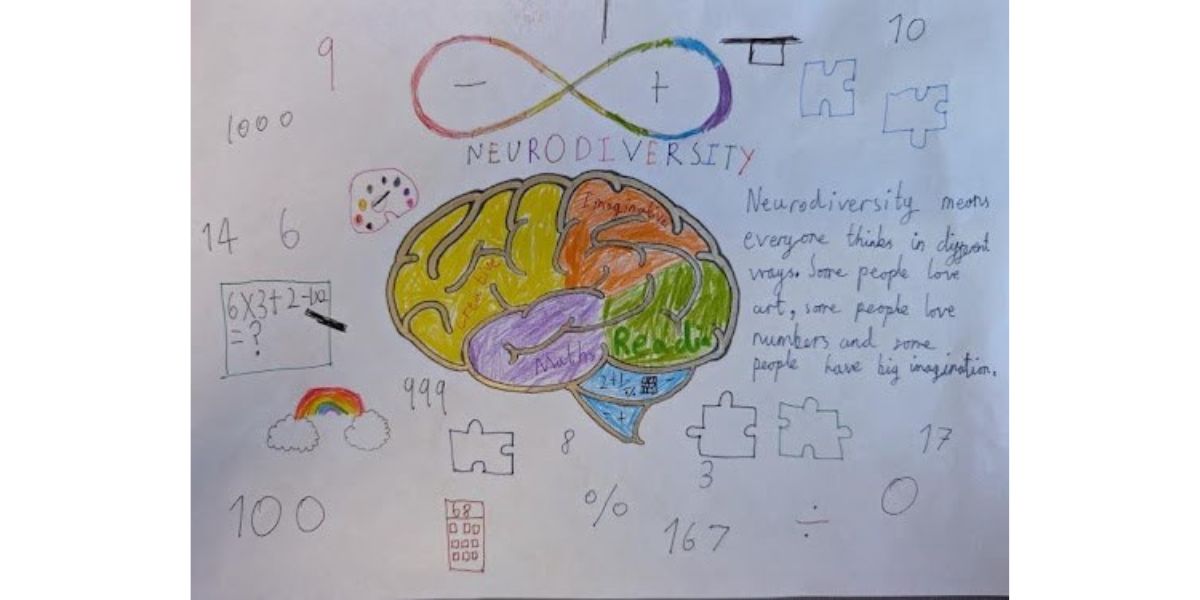 9
10
1000
- +
NEURODIVERSITY
Neurodiversity means
everyone thinks in different
ways. Some people love
art, some people love
numbers and some
people have big imagination.
Imaginative
Creative
14 6
6×3+2-
= ?
Maths
Reading
2+1
% -
- +
999
8
3
17
100
68
%
167
÷
0